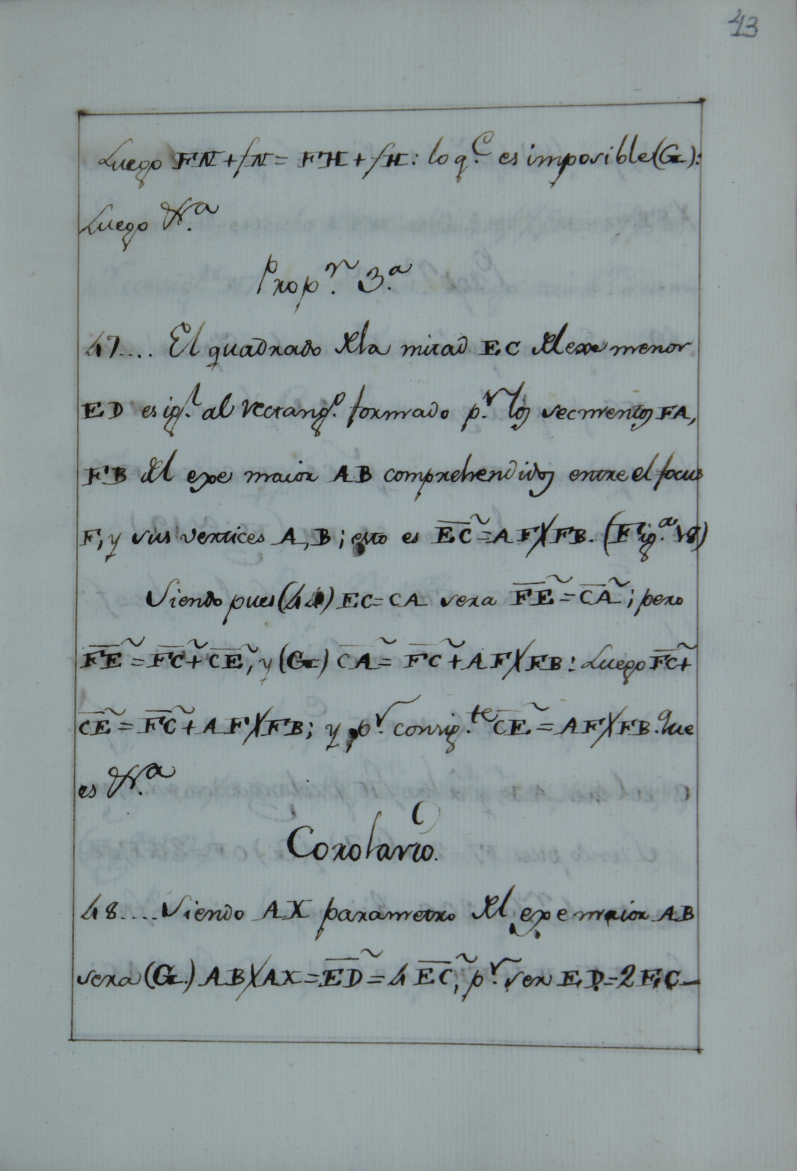 43
Luego FN + fN = FH + fH: lo q.e es imposible (G):
Luego &.a
Prop.n 3.a
47.... El quadrado Dla mitad EC Dl exe menor
ED es ig.l al rectang.o formado p.r los segmentos FA,
FB Dl exe maior AB comprehendidos entre el focus
F, y sus vertices A, B; esto es EC~ = AF X FB. (Fig.a 18)
Siendo pues (44) EC = CA sera FE~ = CA~; pero
FE~ = FC~ + CE~, y (G) CA~ = FC~ + AF X FB: Luego FC~ +
CE~ = FC~ + AF X FB; y p.r consig.te CE~ = AF X FB. Que
es &.a
Corolario.
48.... Siendo AX parametro Dl exe maior AB
sera (G.) AB X AX = ED~ = 4 EC~, p.r ser ED = 2 EC